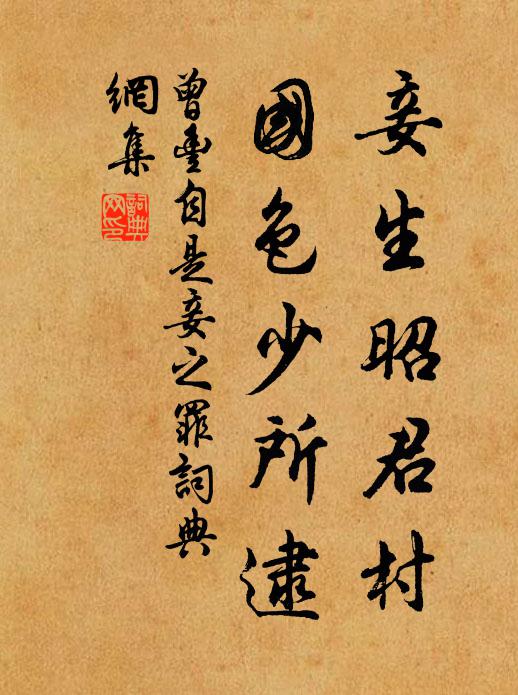 妾生昭君村
國色少所逮
曾豊自是妾之罪詞典
網集
詞典
网印